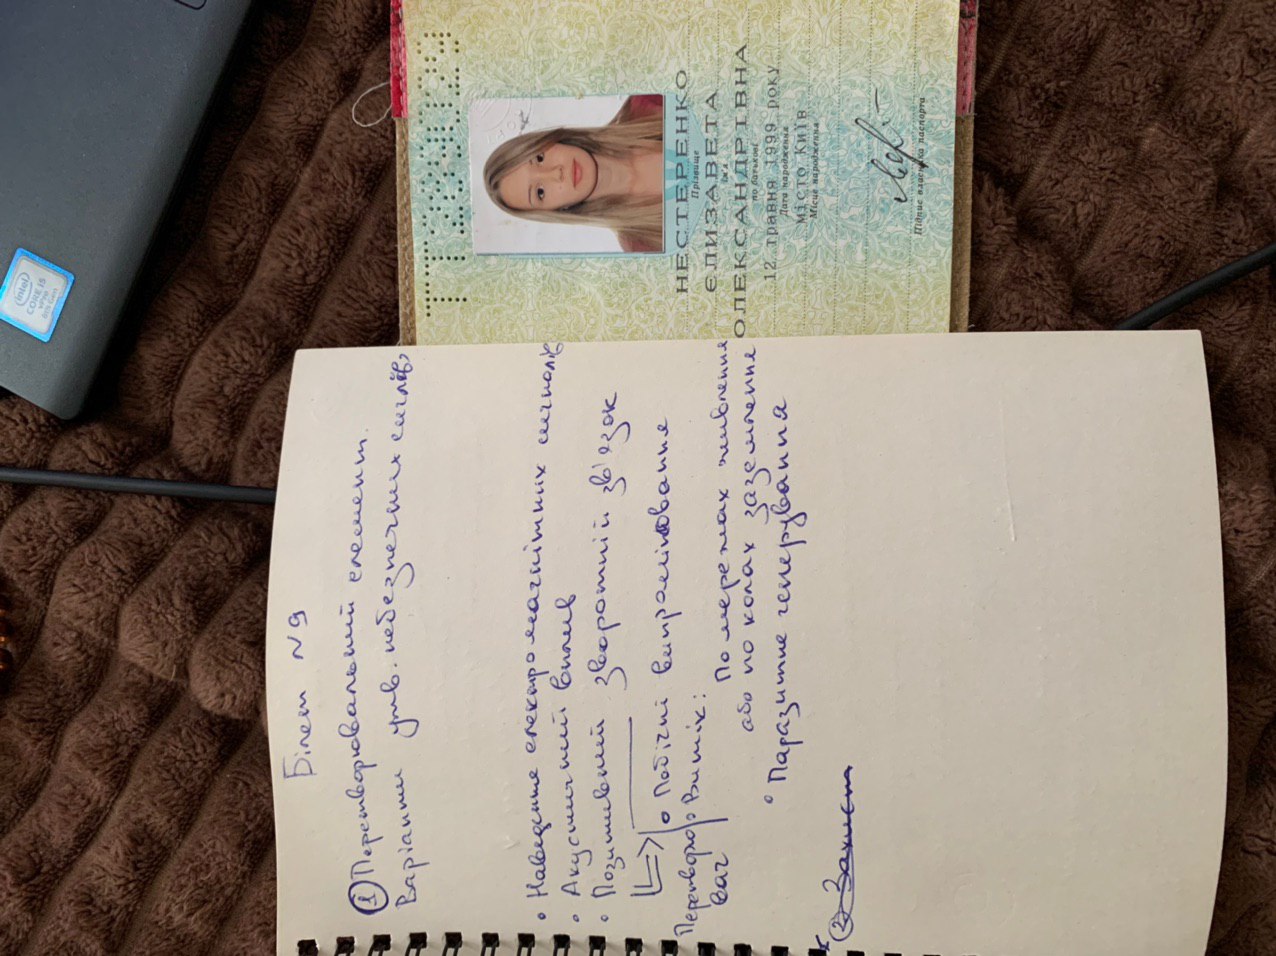 intel
CORE i5
vPRO
8th Gen
НЕСТЕРЕНКО
Прізвище
ЄЛИЗАВЕТА
Ім'я
ОЛЕКСАНДРІВНА
по батькові
12 травня 1999 року
Дата народження
місто Київ
Місце народження
Підпис власника паспорта
Білет №9
① Перетворювальний елемент.
Варіанти утв. небезпечних сигналів
• Наведення електромагнітних сигналів
• Акустичний вплив
• Позитивний зворотній зв'язок
• Побічні випромінювання
Перетворювач
Витік: По мережах живлення
або по колах заземлення
• Паразитне генерування
② Захист